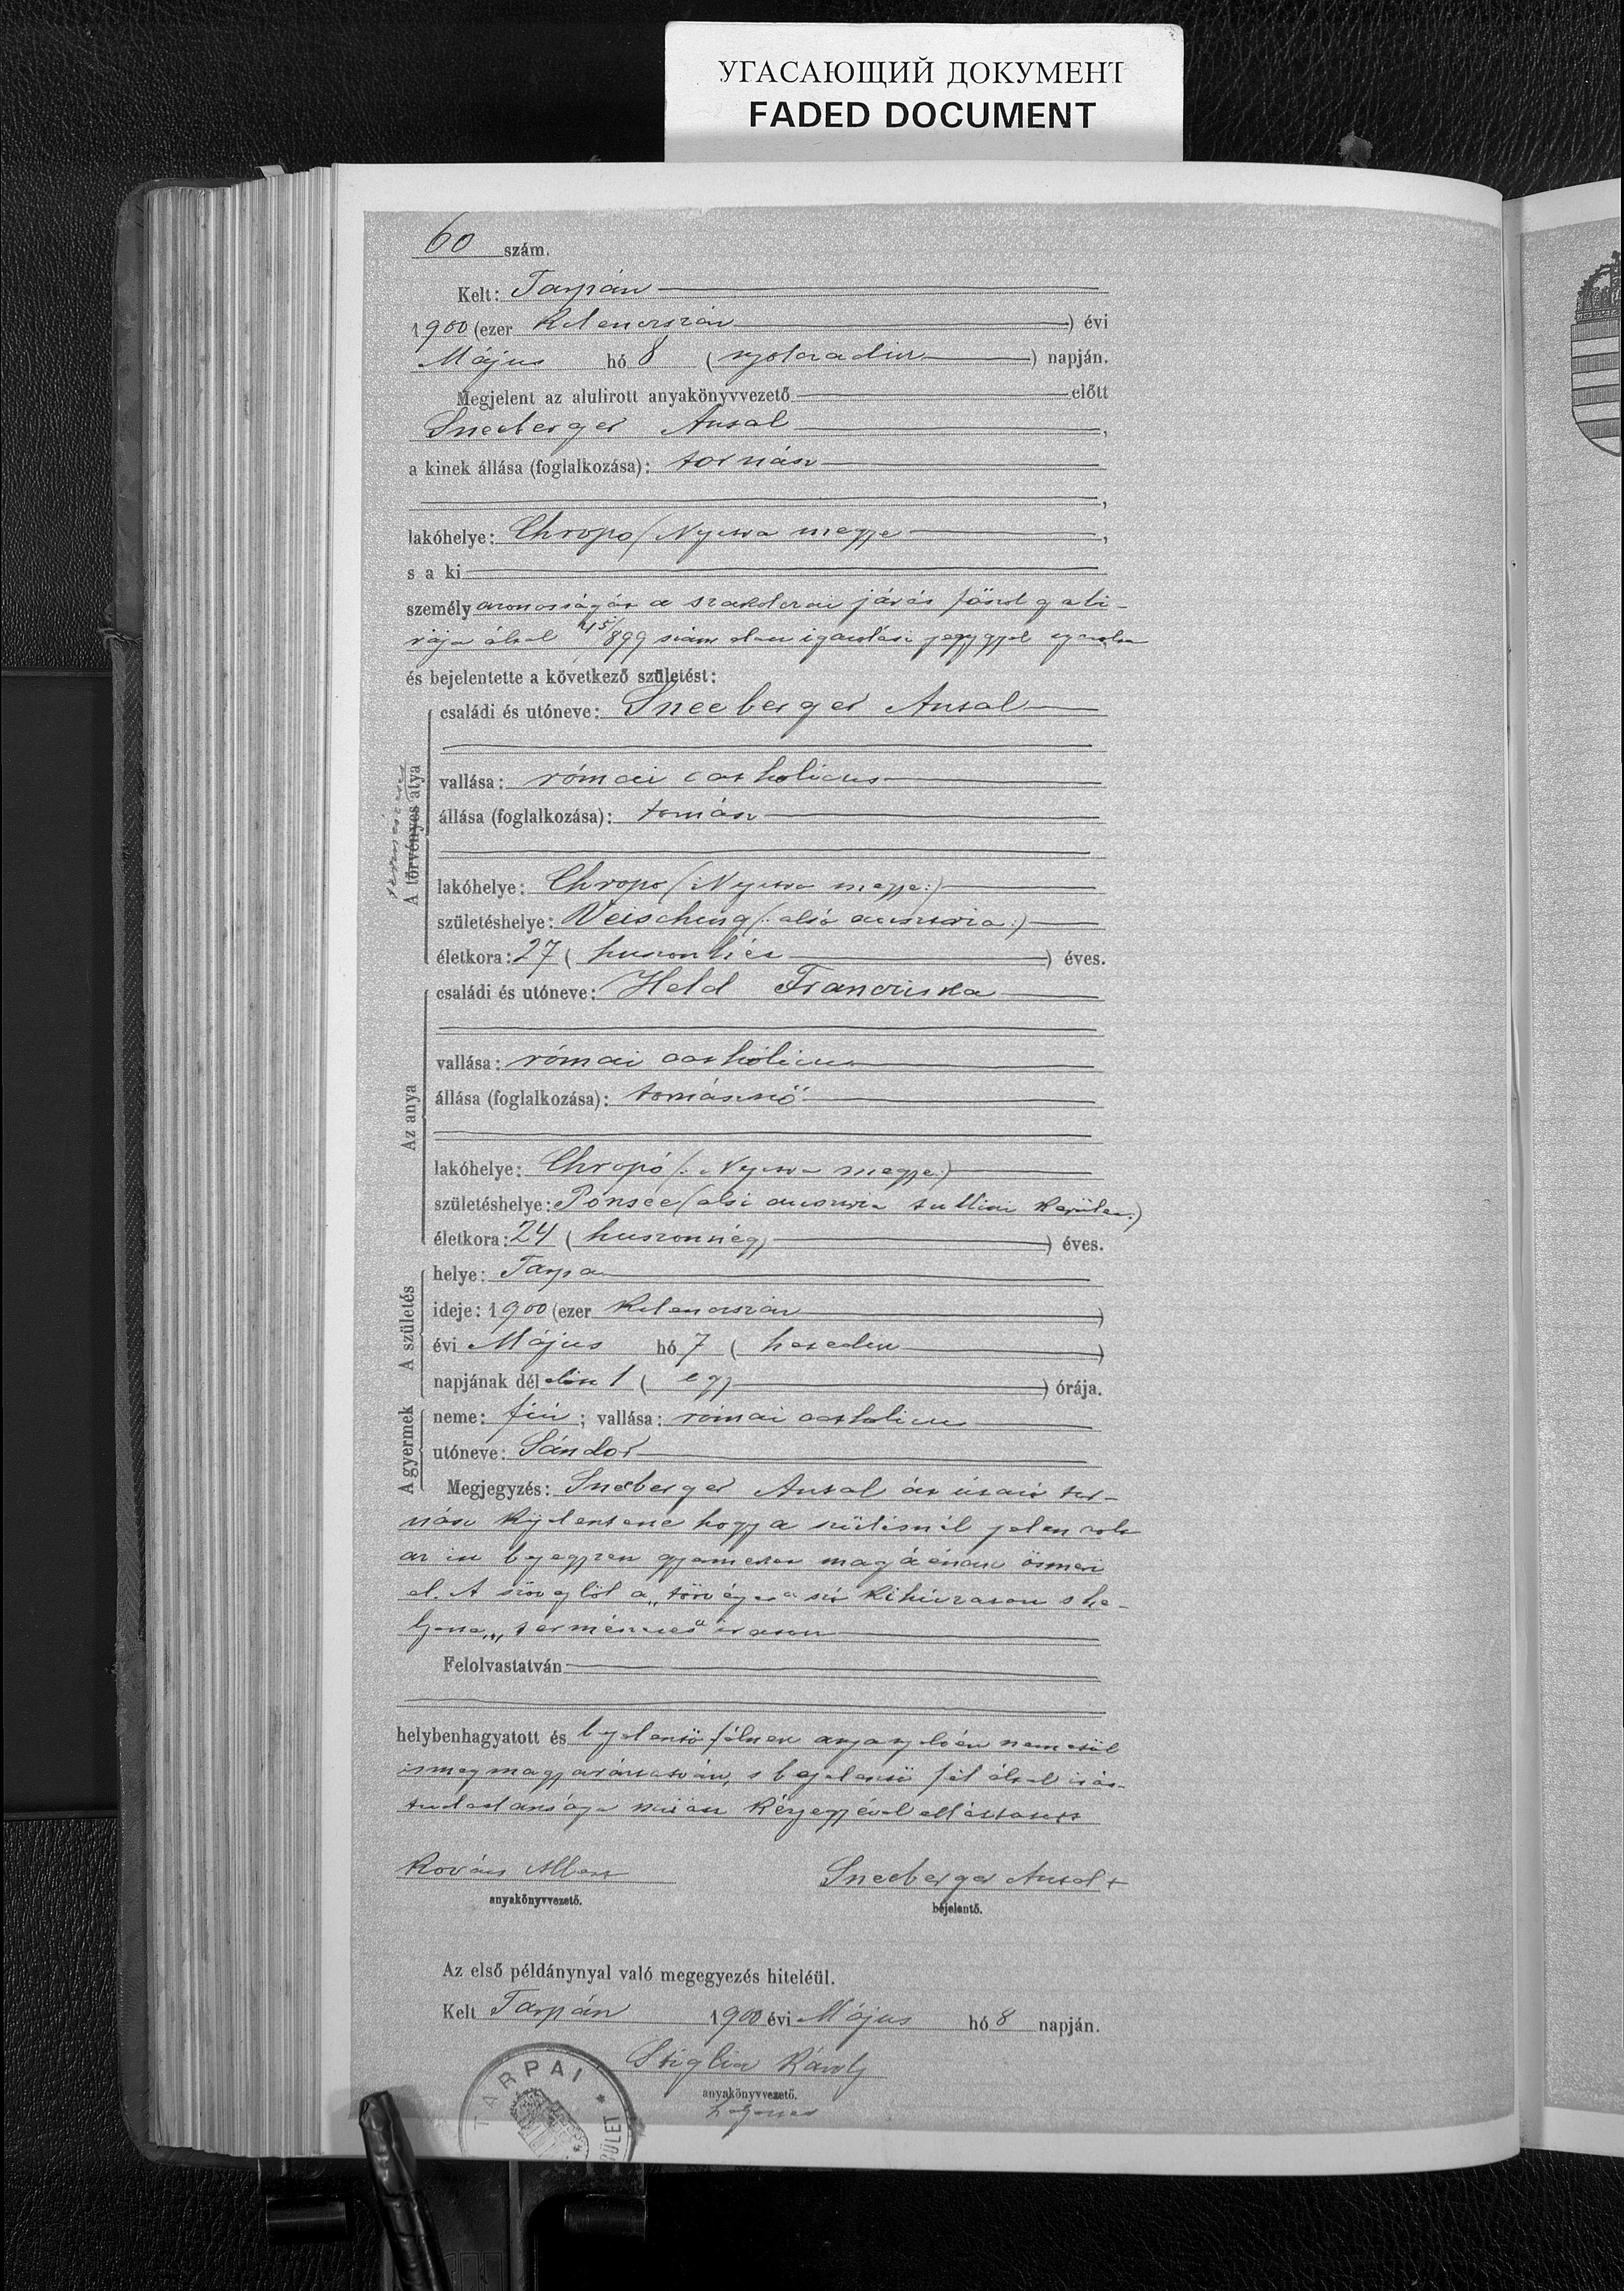 УГАСАЮЩИЙ ДОКУМЕНТ
FADED DOCUMENT
60 szám.
Kelt: Tarpán
1900 (ezer kilenczszáz) évi
Május hó 8 (nyolczadik) napján.
Megjelent az alulirott anyakönyvvezető előtt
Sneeberger Antal,
a kinek állása (foglalkozása): tornász
lakóhelye: Chropo (Nyitra megye,
s a ki
személyazonosságát a szakolczai járás főszolgabi-
rája által 45/899 szám alatt igazolási jegygyel igazolta
és bejelentette a következő születést:
A törvényes atya
természetes
családi és utóneve: Sneeberger Antal
vallása: római catholicus
állása (foglalkozása): tornász
lakóhelye: Chropo (: Nyitra megye:)
születéshelye: Veisching (: alsó ausztria:)
életkora: 27 (huszonhét) éves.
Az anya
családi és utóneve: Held Francziska
vallása: római catholicus
állása (foglalkozása): tornásznő
lakóhelye: Chropó (: Nyitra megye:)
születéshelye: Ponsee (alsó ausztria tullini kerület:)
életkora: 24 (huszonnégy) éves.
A születés
helye: Tarpa
ideje: 1900 (ezer kilenczszáz)
évi Május hó 7 (hetedik)
napjának dél előtt 1 (egy) órája.
A gyermek
neme: fiú; vallása: római catholicus
utóneve: Sándor
Megjegyzés: Sneeberger Antal tor-
nász kijelentené hogy a szülésnél jelen volt
az itt bejegyzett gyermeket magáénak ösmeri
el. A szövegből a „törvényes" szó kihúzatott s he-
lyette „természetes" iratott
Felolvastatván
helybenhagyatott és bejelentő félnek anyanyelvén németül
is megmagyaráztatván, s bejelentő fél által irás-
tudatlansága miatt kézjegyével elláttatott
Kovács Albert
anyakönyvvezető.
Sneeberger Antal +
bejelentő.
Az első példánynyal való megegyezés hiteléül.
Kelt Tarpán 1900 évi Május hó 8 napján.
Károly
anyakönyvvezető.
helyettes
TARPAI